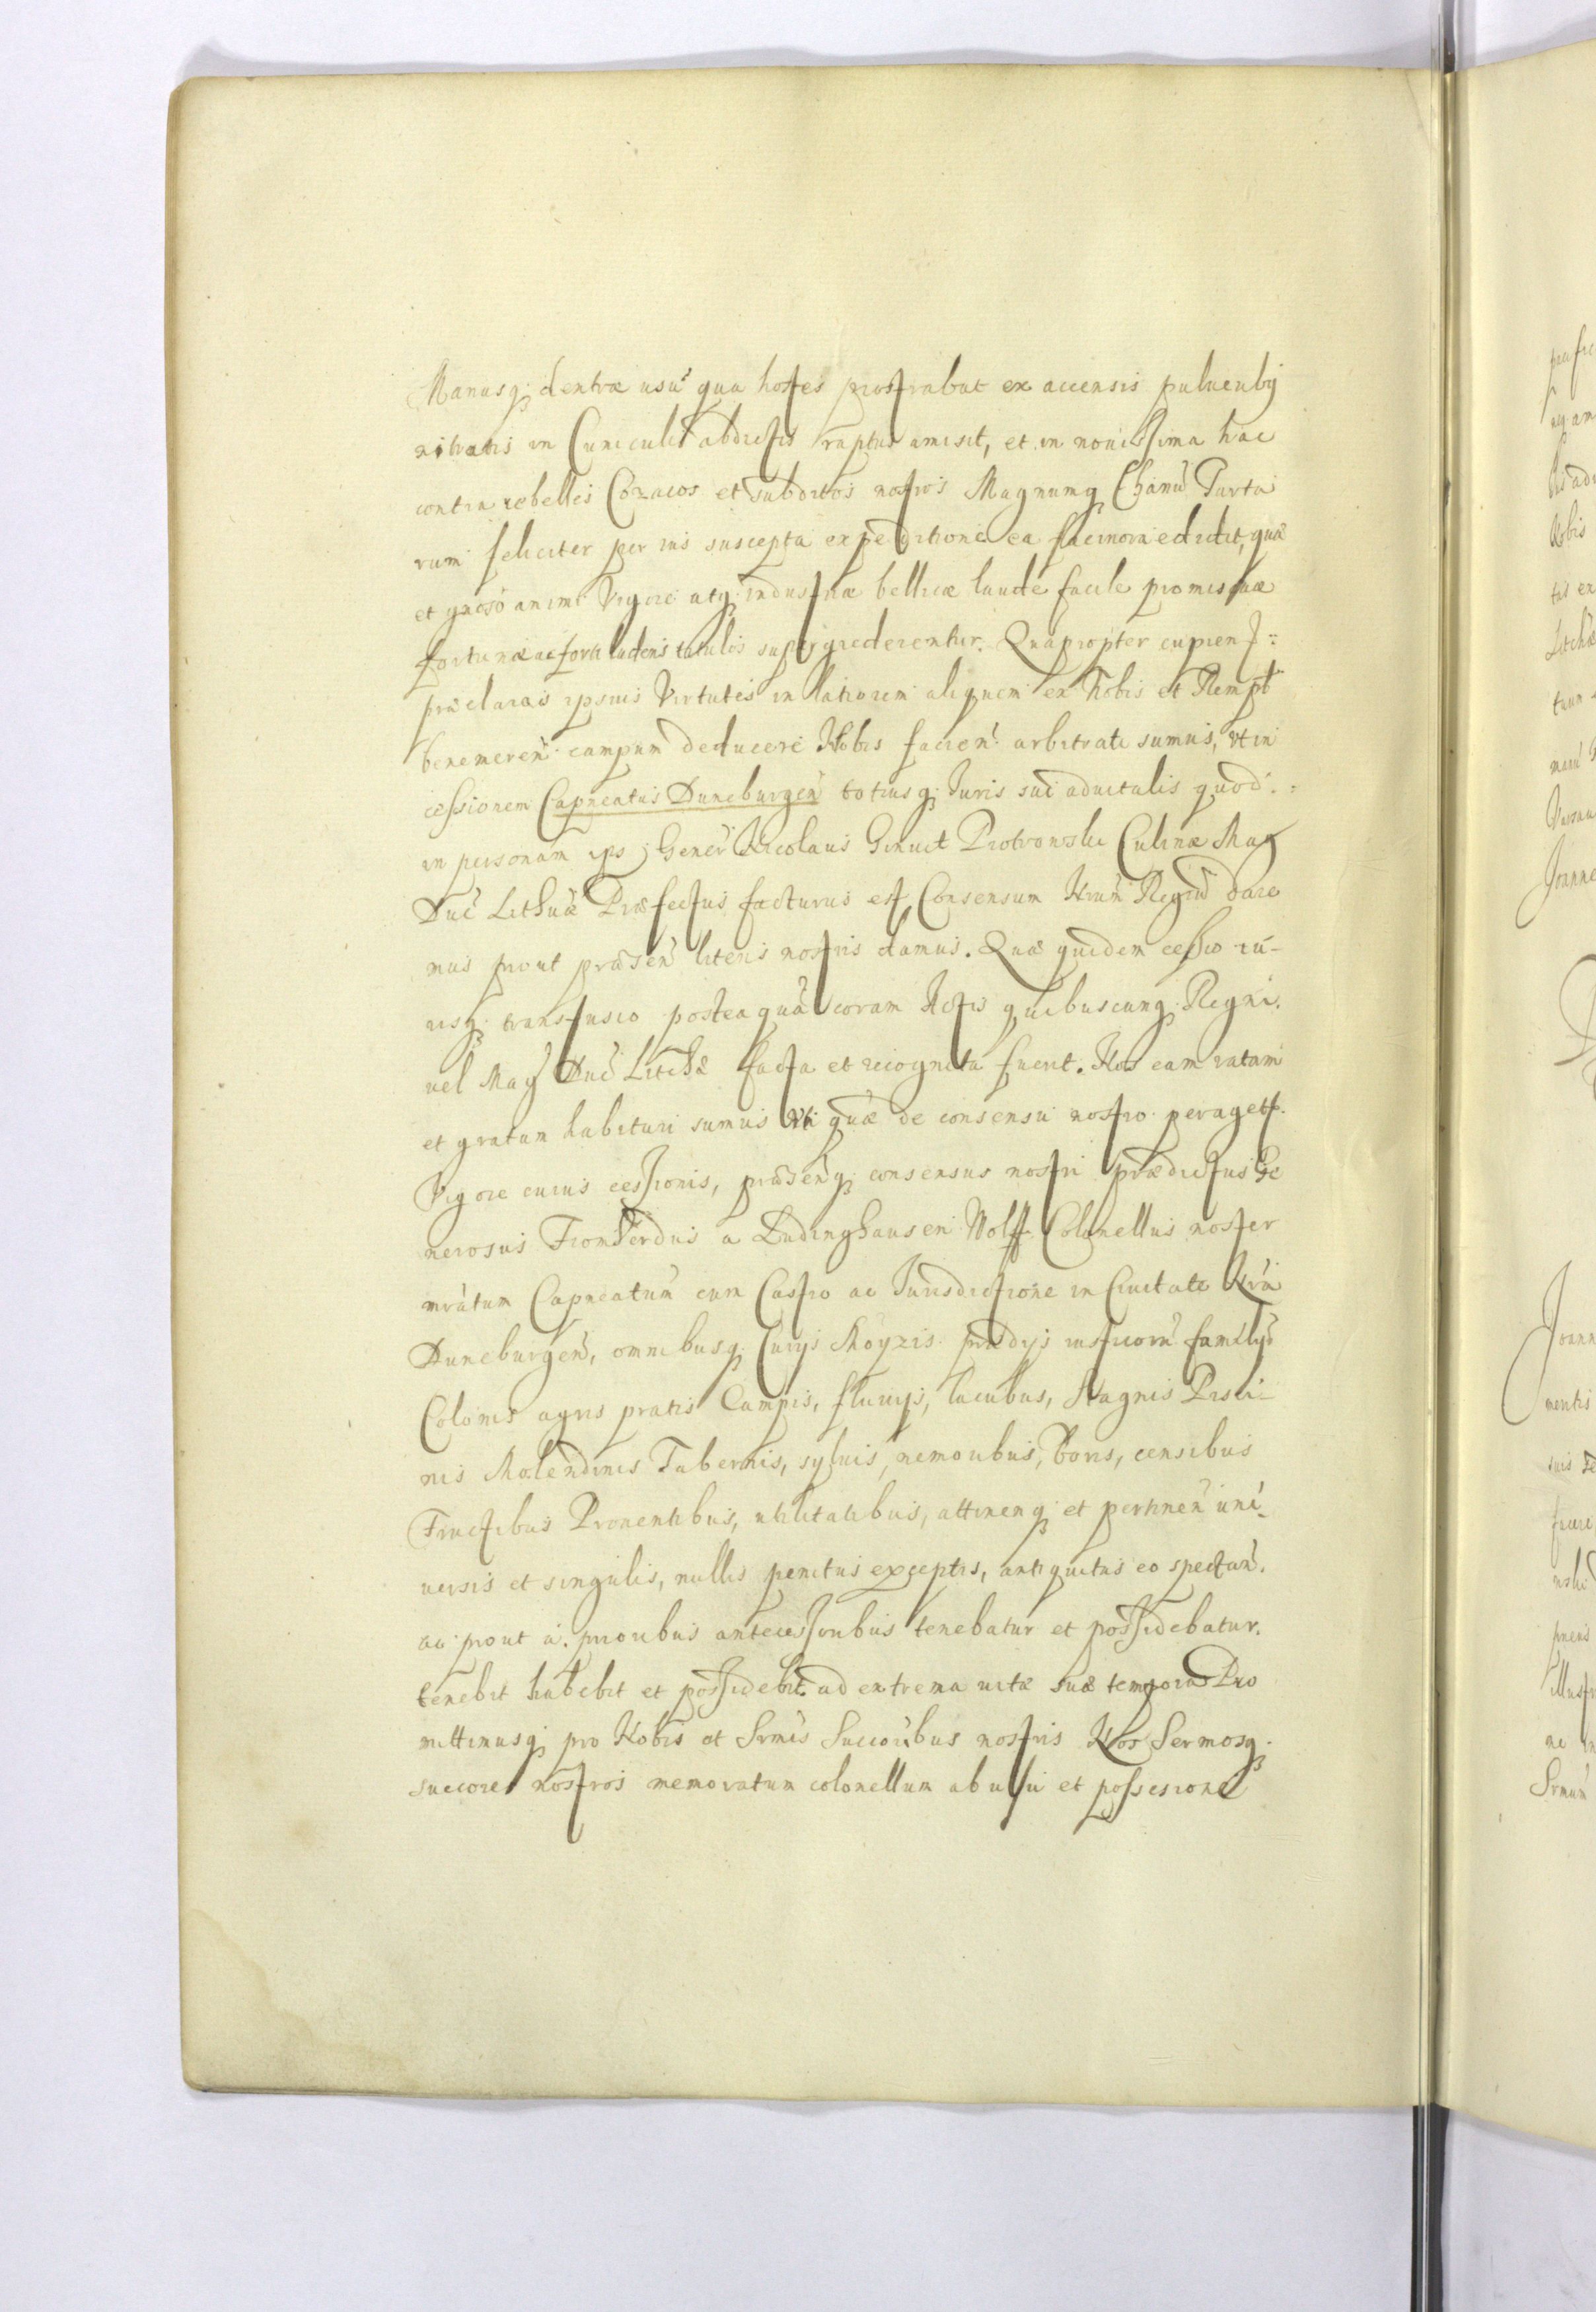 Manusq; dextræ usu qua hostes prostrabat ex accensis pulueriby
nitratis in Cuniculis abditis raptus amisit, et in nouissima hac
contra rebelles Cozacos et subditos nostros Magnumq Chamũ Tarta
rum feliciter per nos suscepta expeditione ea facinora edidit, quæ
et gnoso animi Vigore atq; industriæ bellicæ laude facile promiscuæ
fortunæ ac fortitudinis titulos supergrederentur. Quapropter cupien
præclaras ipsius Virtutes in latiorem aliquem ex Nobis et Rempt
benemeren campum deducere Nobis facien arbitrati sumus, ut in
cessionem Capneatus Duneburgeñ totiusq; Juris sui aduitalis quod
in personam ips Gener Nicolaus Genuit Piotrowski Culinæ Mag
Duc Lithuæ Præfectus facturus est, Consensum Nrum Regiũ dare
mus prout præsen literis nostris damus. Quæ quidem cessio iu-
risq; transfusio postea quã coram Actis quibuscunq; Regni.
uel Mag Duc Lithæ facta et recognita fuerit. Nos eam ratam
et gratam habituri sumus uti quæ de consensu nostro peraget.
Vigore cuius cessionis, præsenq; consensus nostri prædictus Ge
nerosus Fromherdus a Ludinghausen Wolff Colonellus noster
mrátum Capneatum cum Castro ac Jurisdictione in Ciuitate Nrã
Duneburgeñ, omnibusq; Curijs Moyzis prædijs rusticorũ familijs
Colonis agris pratis Campis, fluuijs, lacubus, Stagnis Pisci-
nis Molendinis Tabernis, syluis, nemoribus, boris, censibus
Fructibus Prouentibus, utilitatibus, attinenq; et pertinen uni-
uersis et singulis, nullis penitus exceptis, antiquitus eo spectañ.
ac prout a prioribus antecessoribus tenebatur et possidebatur.
tenebit habebit et possidebit ad extrema uitæ suæ tempora Pro
mittimusq; pro Nobis et Srmis Succoribus nostris Nos Sermosq;
succores nostros memoratum colonellum ab usu et possesione